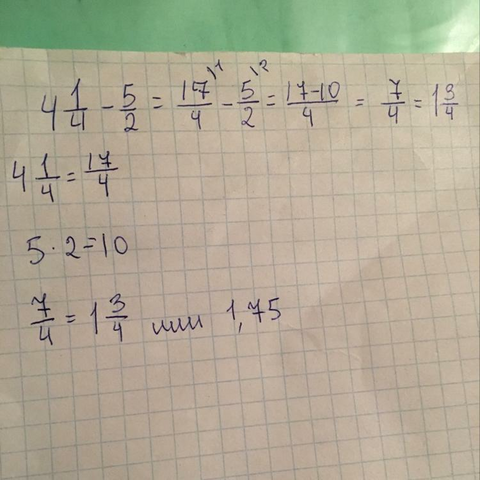 4 1/4 - 5/2 = 17\1/4 - 5\2/2 = 17-10/4 = 7/4 = 1 3/4
4 1/4 = 17/4
5 · 2 = 10
7/4 = 1 3/4 или 1,75